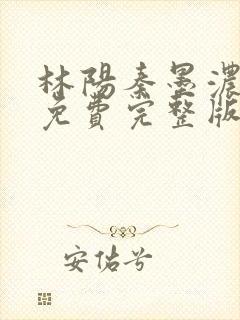 林陽秦墨濃
免費完整版
安估兮